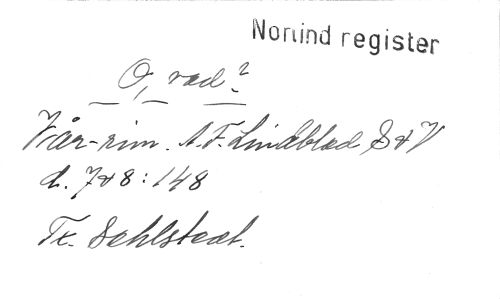 Norrind register
O, vad?
Vår-rim. A.F. Lindblad S & V
d. 7 & 8: 148
Tx. Sehlstedt.